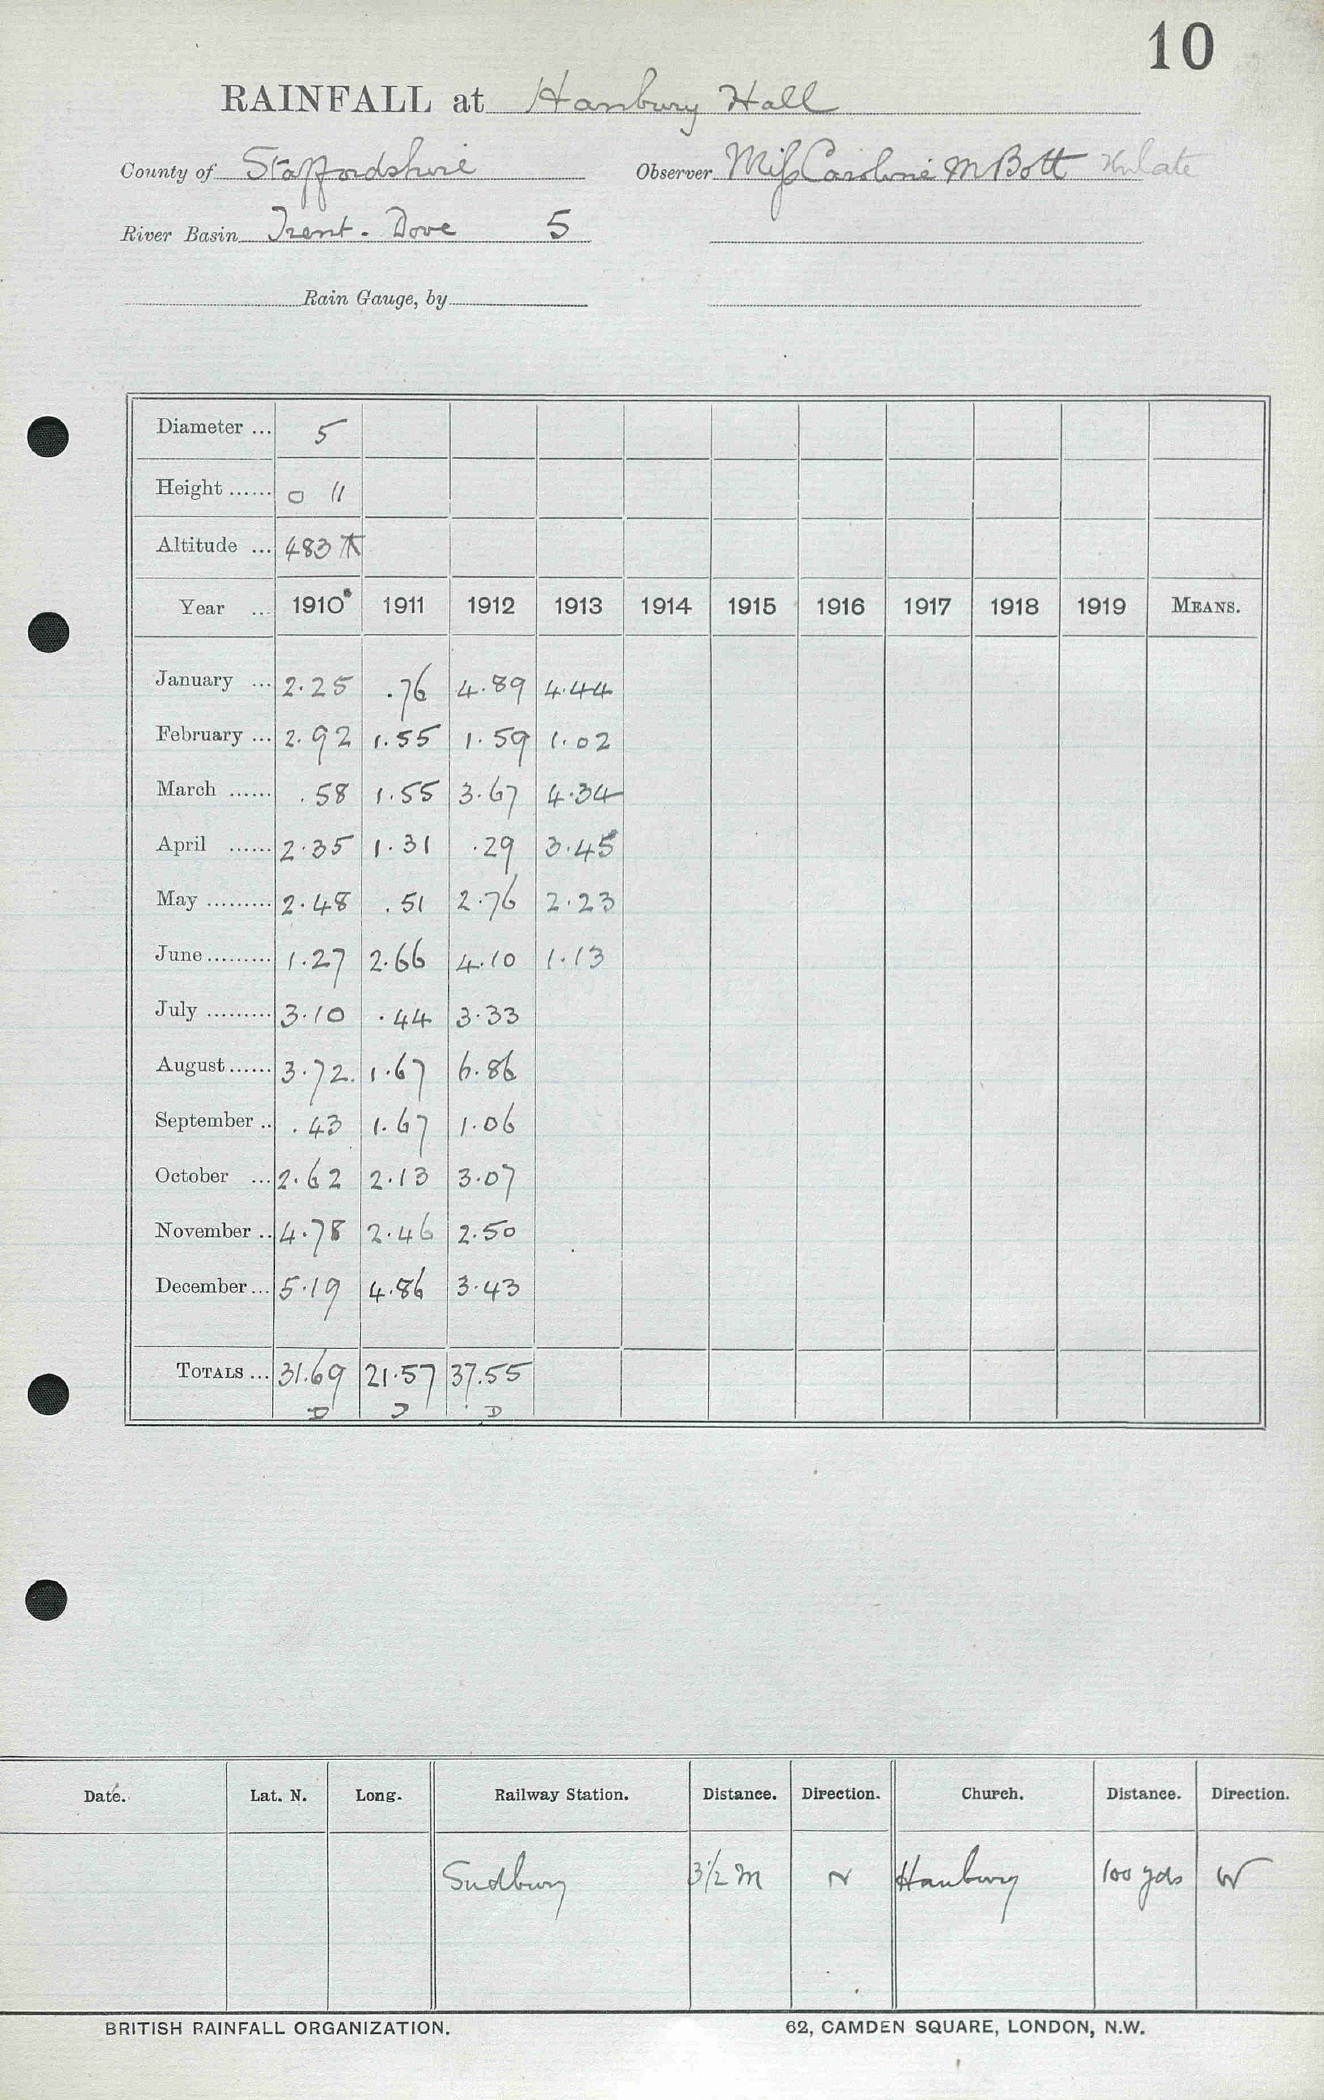 10
RAINFALL at Hanbury Hall
County of Staffordshire Observer Miss Caroline M Bott
River Basin Trent. Dove 5
Rain Gauge, by
Diameter ... 5
Height ...... 0 11
Altitude ... 483
Year ... 1910 1911 1912 1913 1914 1915 1916 1917 1918 1919 MEANS.
January ... 2.25 .76 4.89 4.44
February ... 2.92 1.55 1.59 1.02
March ...... .58 1.55 3.67 4.34
April ...... 2.35 1.31 .29 3.45
May ......... 2.48 .51 2.76 2.23
June ......... 1.27 2.66 4.10 1.13
July ......... 3.10 .44 3.33
August ...... 3.72. 1.67 6.86
September .. .43 1.67 1.06
October ... 2.62 2.13 3.07
November .. 4.78 2.46 2.50
December ... 5.19 4.86 3.43
TOTALS ... 31.69 21.57 37.55
D D D
Date. Lat. N. Long. Railway Station. Distance. Direction. Church. Distance. Direction.
Sudbury 3½ M N Hanbury 100 yds W
BRITISH RAINFALL ORGANIZATION. 62, CAMDEN SQUARE, LONDON, N.W.